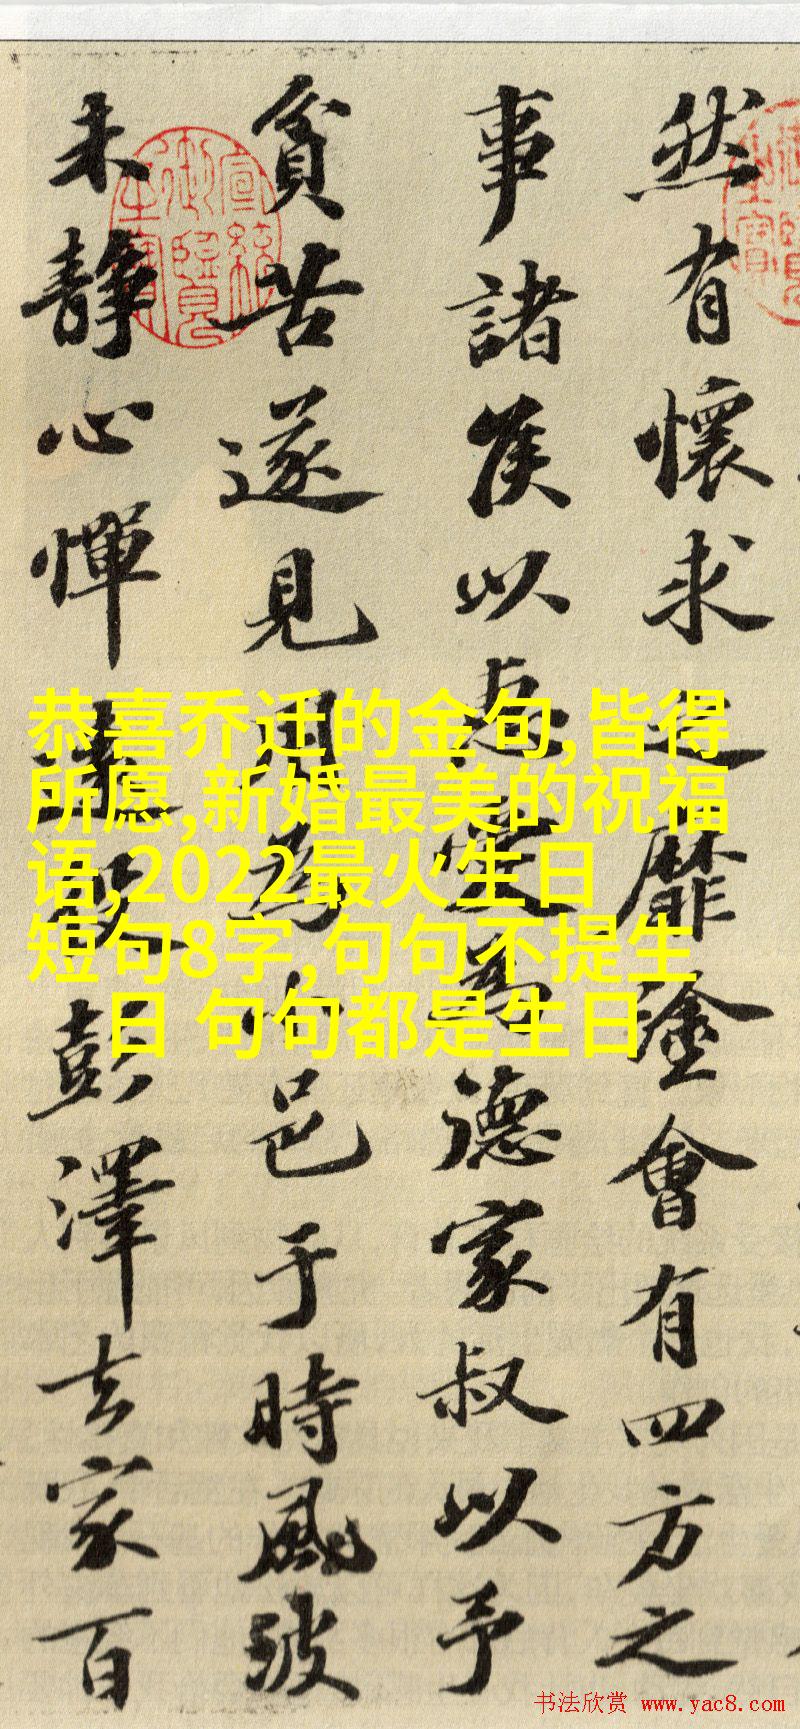 然有懷求之靡塗會有四方之
事諸侯以惠愛為德家叔以予
貧苦遂見用為小邑于時風波
未靜心憚遠役彭澤去家百
宣統御覽之寶
恭喜乔迁的金句,皆得
所愿,新婚最美的祝福
语,2022最火生日
短句8字,句句不提生
日 句句都是生日
书法欣赏 www.yac8.com